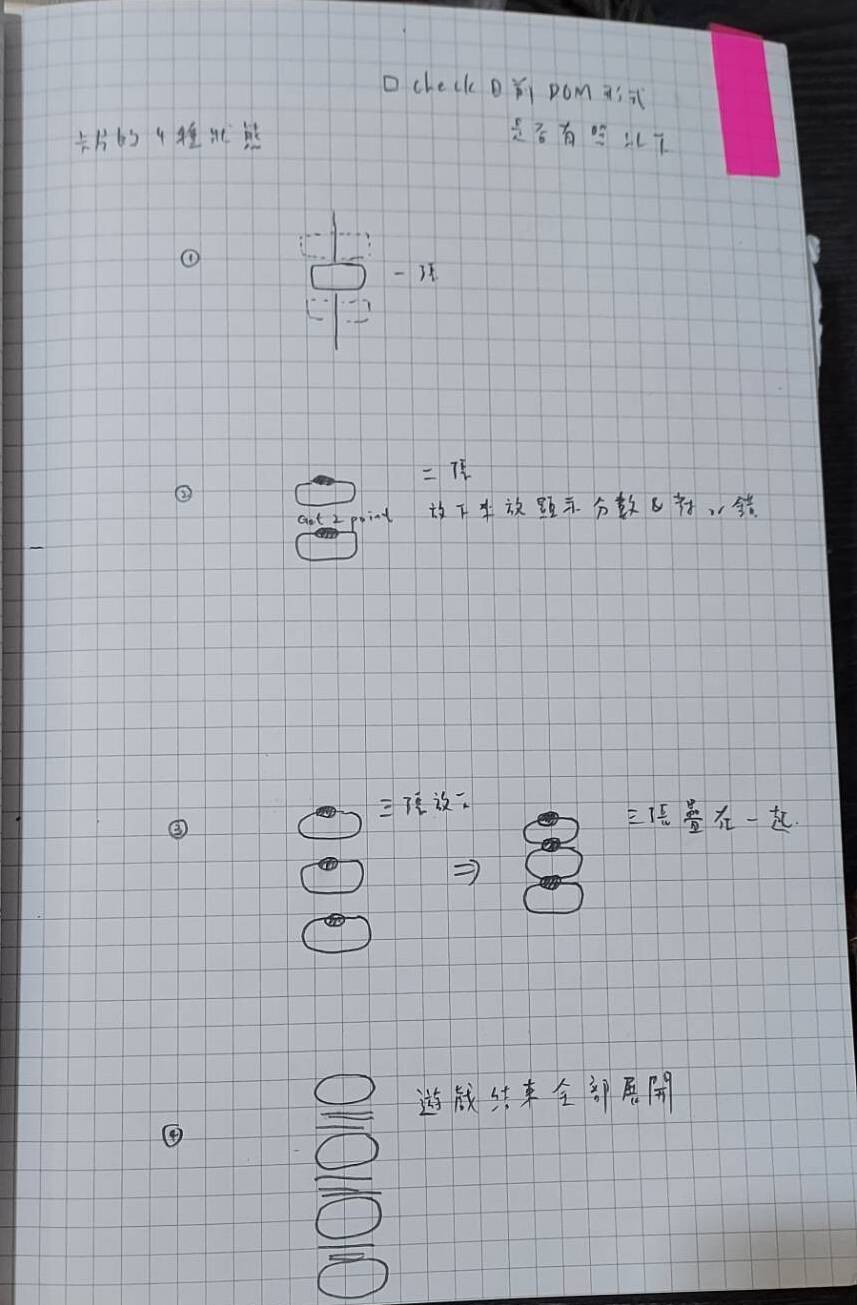 □ check 目前 DOM 形式
是否有照狀態
卡片的 4 種狀態
① 一張
② 二張
Get 2 point 放下來放顯示分數 & 對 or 錯
③ 三張放下 ⇒ 三張疊在一起.
④ 遊戲結束全部展開